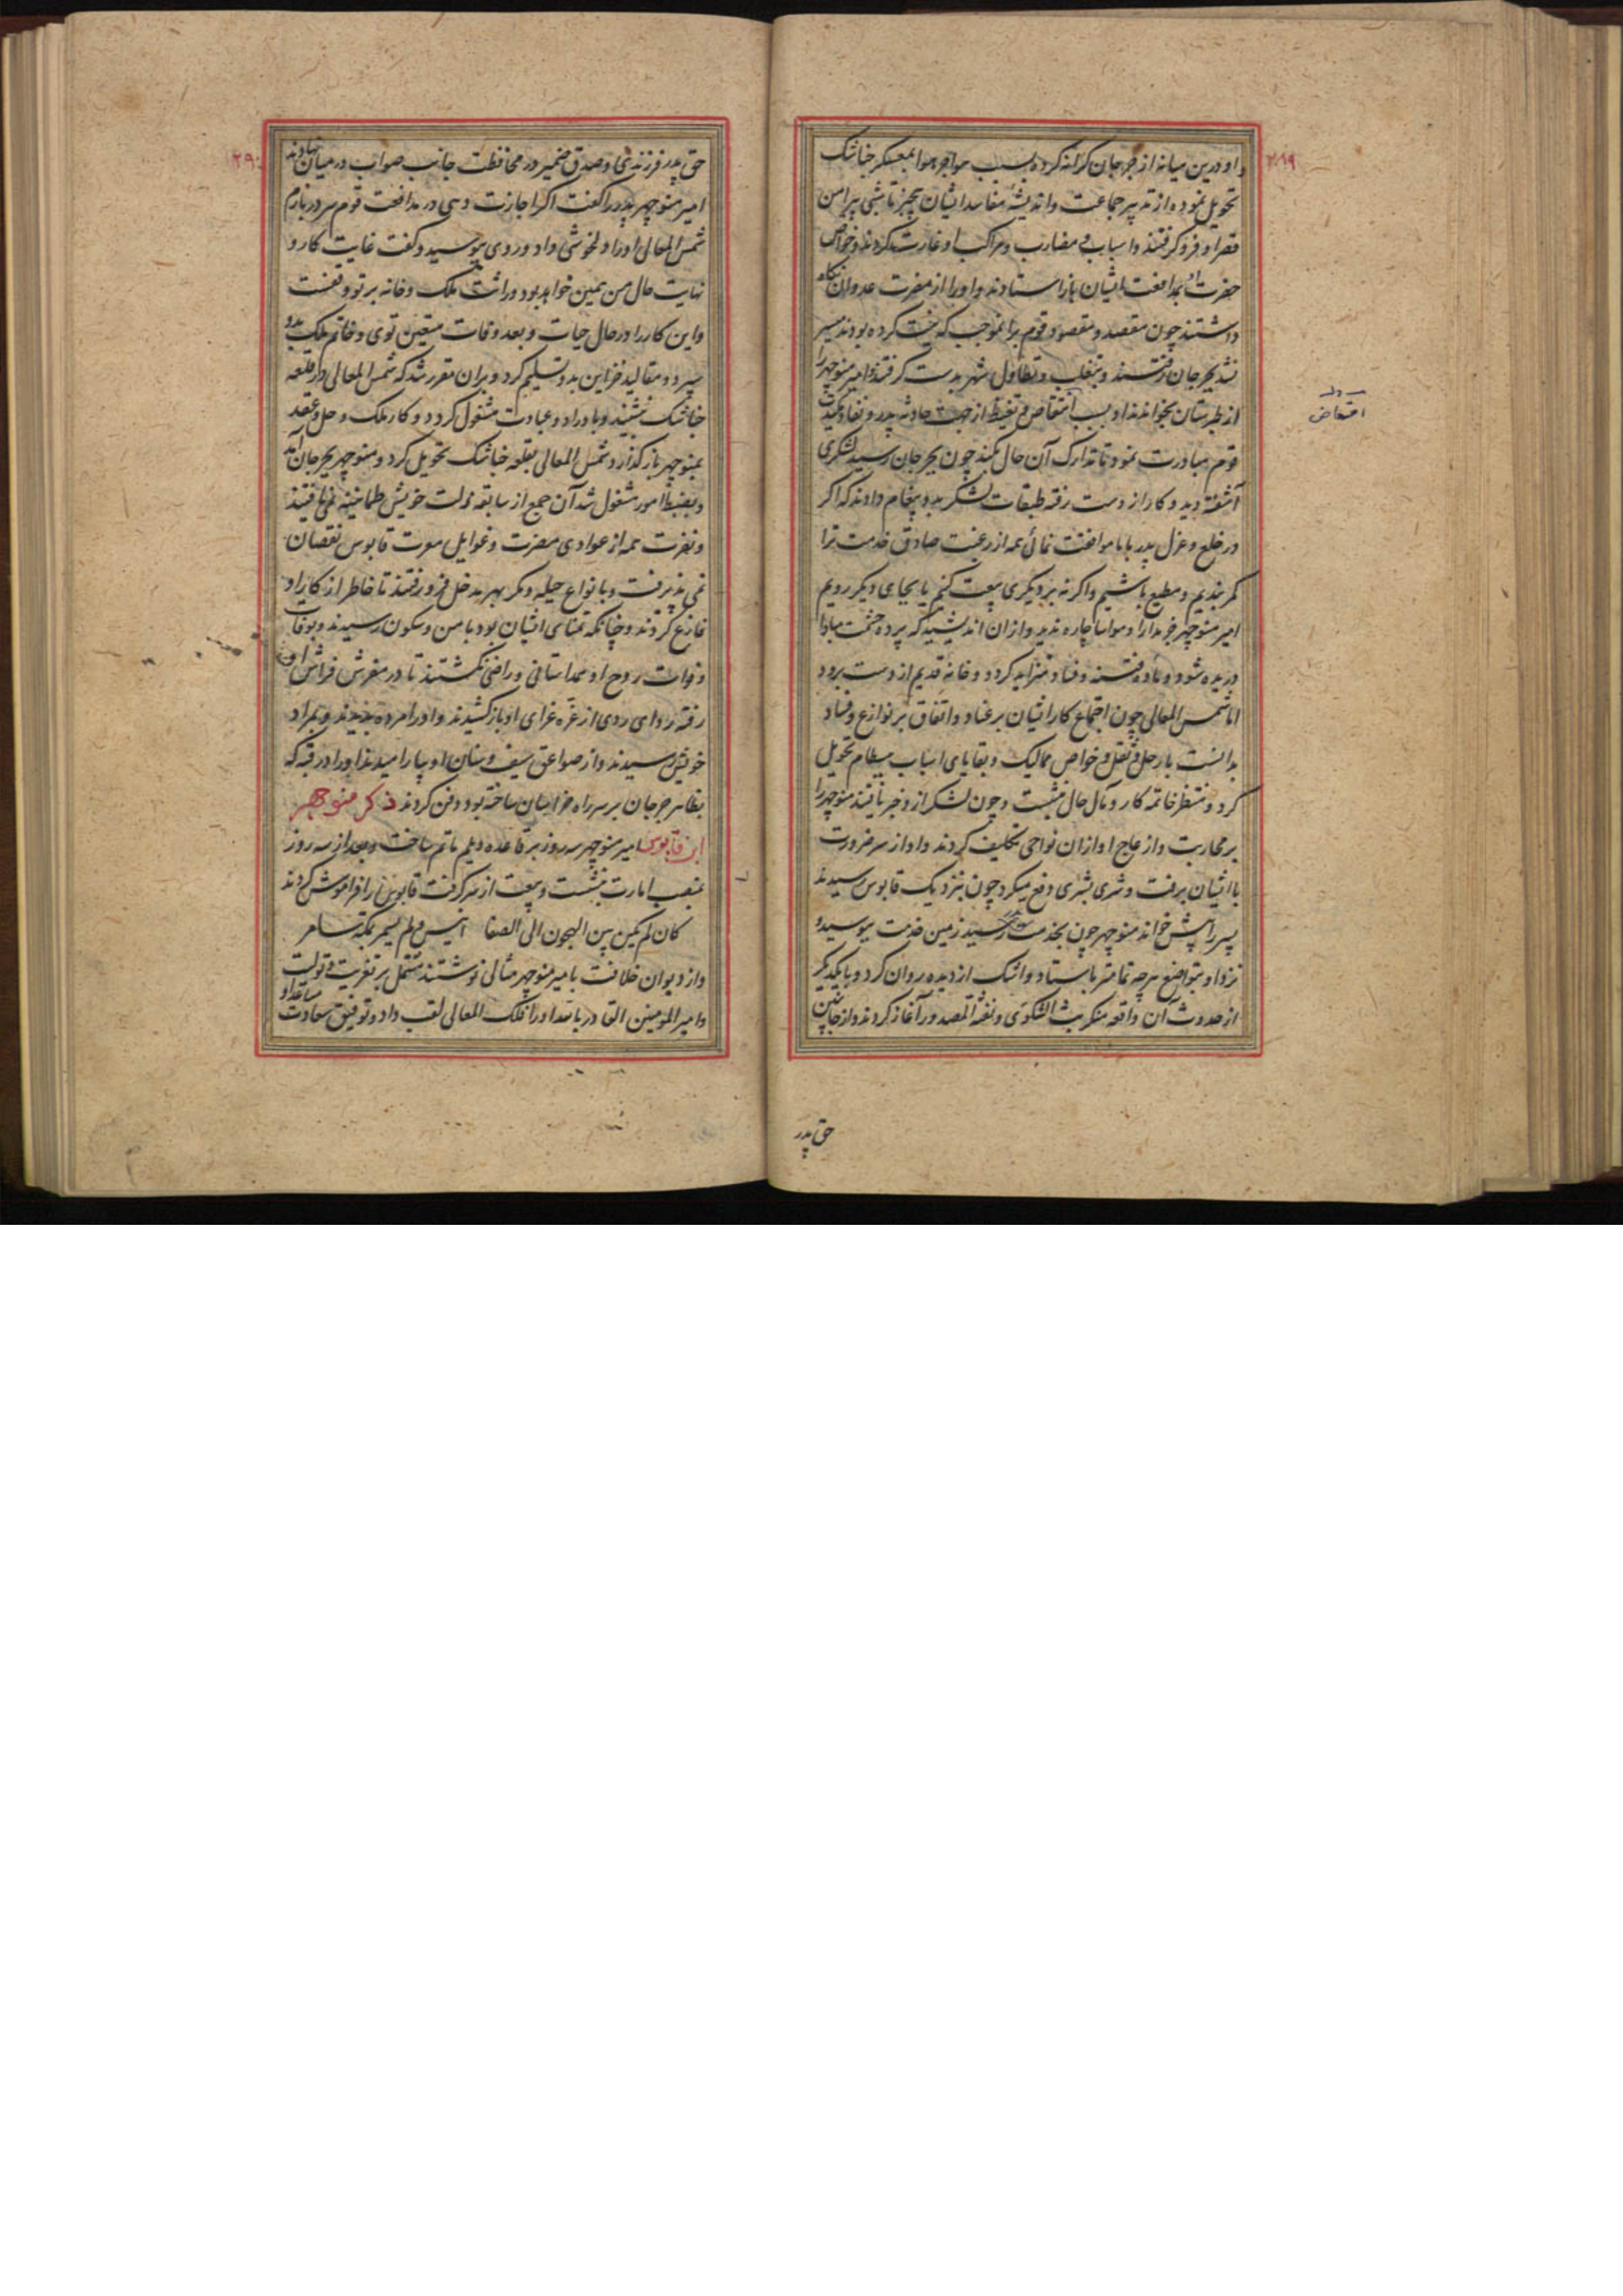 او درین میانه از جرجان کرانه کرده بسبب هوا بمعسکر خناشک
تحویل نموده از تدبیر جماعت و اندیشهٔ مفاسد ایشان بیخبر تا شبی پیرامن
قصر او فرو گرفتند و اسباب و مضارب و مراکب او غارت کردند و خواص
حضرت او بمدافعت ایشان باز استادند و او را از مضرت عدوان نگاه
داشتند چون مقصد و مقصود قوم برانموجب که نیت کرده بودند میسر
نشد بجرجان رفتند و بتغلب و تطاول شهر بدست گرفتند و امیر منوچهر را
از طبرستان بخواندند او بسبب انتقاض و تغیظ از جهت حادثه پدر و تفادی
قوم مبادرت نمود تا تدارک آن حال بکند چون بجرجان رسید لشکری
آشفته دید و کار از دست رفته طبقات لشکر بدو پیغام دادند که اگر
در خلع و عزل پدر با ما موافقت نمائی همه از رغبت صادق خدمت ترا
کمر بندیم و مطیع باشیم و اگر نه بر دیگری بیعت کنیم یا بجای دیگر رویم
امیر منوچهر جز مدارا و مواسا چاره ندید و ازان اندیشید که پرده حشمت مبادا
دریده شود و ماده فتنه و فساد متزاید گردد و خانهٔ قدیم از دست برود
اما شمس المعالی چون اجتماع کار ایشان بر عناد و اتفاق بر نوازع و فساد
بدانست با رحل و ثقل و خواص ممالیک و بقایای اسباب ببسطام تحویل
کرد و منتظر خاتمه کار و مآل حال بنشست و چون لشکر ازو خبر یافتند منوچهر را
بر محاربت و ازعاج او ازان نواحی تکلیف کردند و او از سر ضرورت
با ایشان برفت و شری بشری دفع میکرد چون بنزدیک قابوس رسیدند
پسر را پیش خواند منوچهر چون بخدمت رسید زمین خدمت ببوسید و
نزد او بتواضع هر چه تمامتر باستاد و اشک از دیده روان کرد و با یکدیگر
از حدوث آن واقعه منکر بث الشکوی و نفثة المصدور آغاز کردند و از جانبین
حق پدر
۲۸۹
بدل
امتعاض
۲۹۰
حق پدر فرزندی و صدق ضمیر در محافظت جانب صواب در میان نهادند
امیر منوچهر پدر را گفت اگر اجازت دهی در مدافعت قوم سر در بازم
شمس المعالی او را دلخوشی داد و روی ببوسید و گفت غایت کار و
نهایت حال من همین خواهد بود و راثت ملک و خانه بر تو وقفست
و این کار را در حال حیات و بعد وفات متعین توی و خاتم ملک بدو
سپرد و مقالید خزاین بدو تسلیم کرد و بران مقرر شد که شمس المعالی در قلعه
خناشک بنشیند و باوراد و عبادت مشغول گردد و کار ملک و حل و عقد
بمنوچهر باز گذارد شمس المعالی بقلعه خناشک تحویل کرد و منوچهر بجرجان آمد
و بضبط امور مشغول شد آن جمع از سابقه زلت خویش طمانینه نمی یافتند
و نفرت همه از عوادی مضرت و غوایل معرت قابوس نقصان
نمی پذیرفت و با نواع حیله و مکر بهر مدخل فرو رفتند تا خاطر از کار او
فارغ کردند و چنانکه تمنای ایشان بود بامن و سکون رسیدند و بوفات
و فوات روح او همداستانی و راضی نگشتند تا در مفرش فراش او
رفته ردای ردی از غره غرای او باز کشیدند و او را مرده بدیدند و بمراد
خویش رسیدند و از صواعق سیف و سنان او بیارامیدند او را در قبه که
بظاهر جرجان بر سر راه خراسان ساخته بود دفن کردند ذکر منوچهر
ابن قابوس امیر منوچهر سه روز بر قاعده دیلم ماتم ساخت و بعد از سه روز
بمنصب امارت بنشست و بیعت از سر گرفت قابوس را فراموش کردند
کان لم یکن بین الحجون الی الصفا انیس و لم یسمر بمکة سامر
و از دیوان خلافت بامیر منوچهر مثالی نوشتند مشتمل بر تعزیت و تولیت
و امیر المومنین القادر بالله او را فلک المعالی لقب داد و توفیق سعادت مساعد او